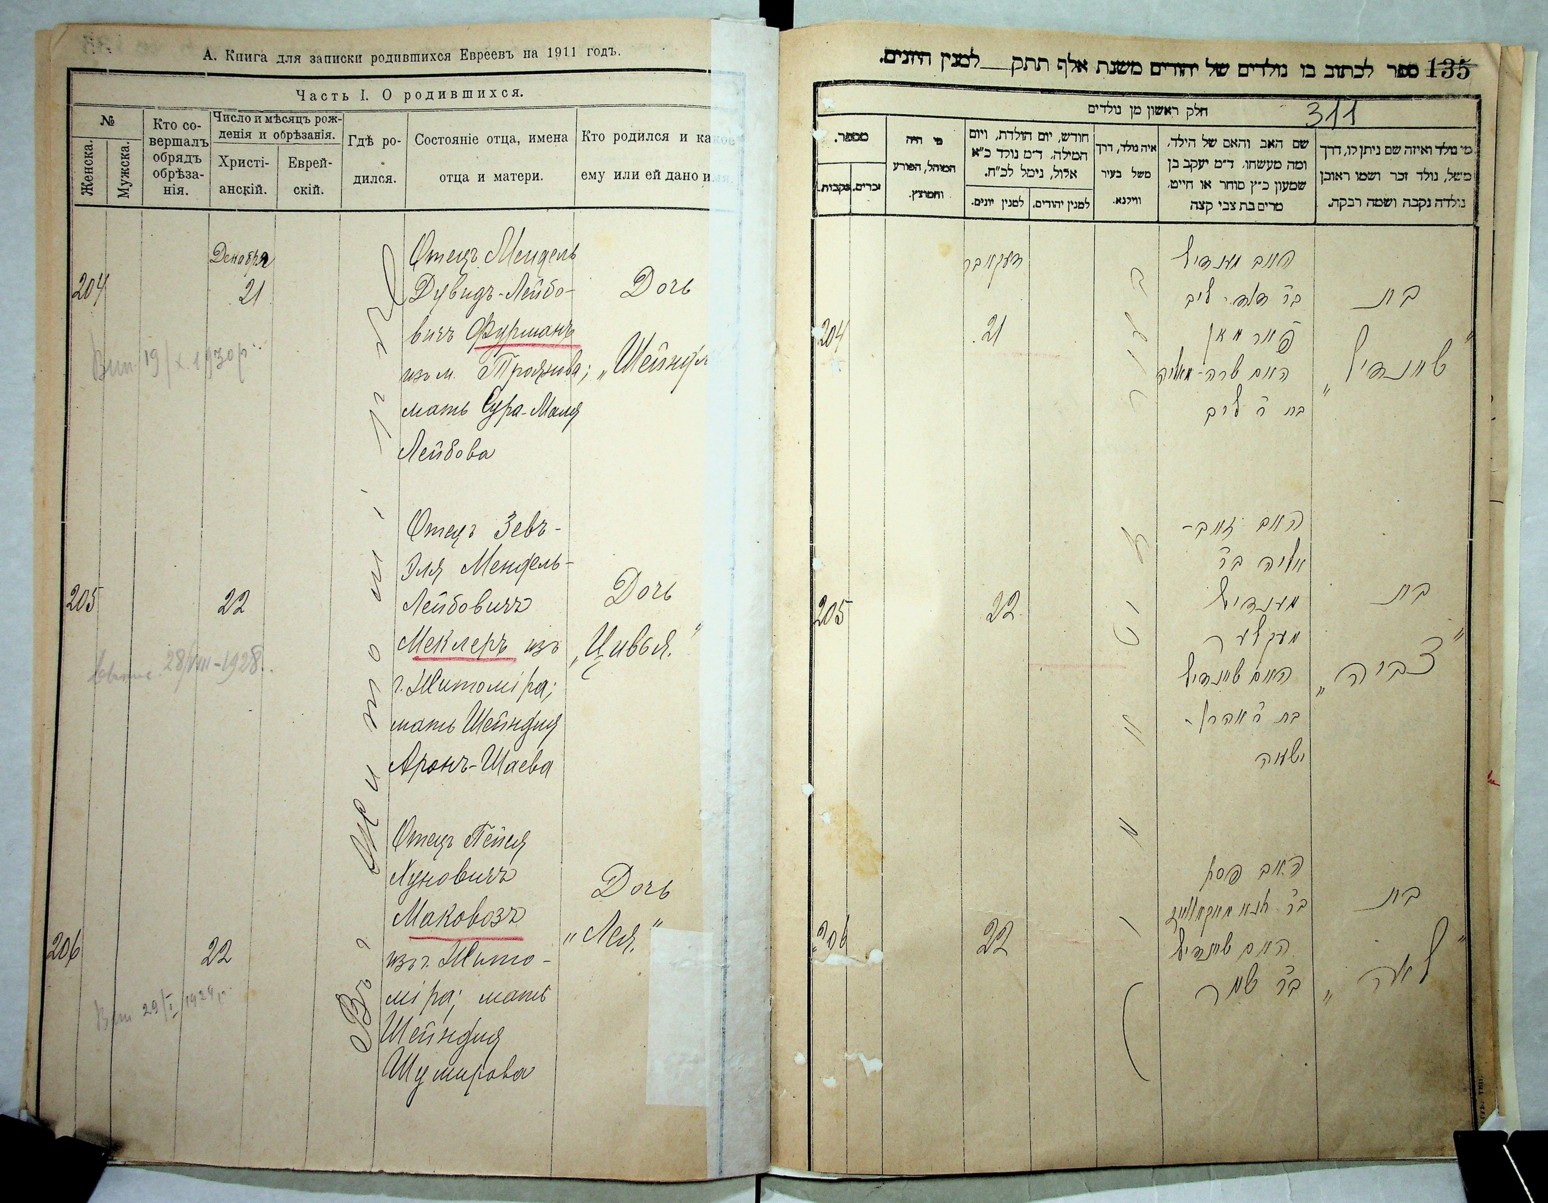 А. Книга для записки родившихся Евреевъ на 1911 годъ.
Часть I. О родившихся.
№
Женска.
Мужска.
Кто со-
вершалъ
обрядъ
обрѣза-
нія.
Число и мѣсяцъ рож-
денія и обрѣзанія.
Христі-
анскій.
Еврей-
скій.
Гдѣ ро-
дился.
Состояніе отца, имена
отца и матери.
Кто родился и какое
ему или ей дано имя.
204
Декабря
21
Отецъ Мендель
Дувидъ-Лейбо-
вичъ Фурманъ
изъ м. Троянова;
мать Сура-Маля
Лейбова
Дочь
„Шейндля
Вип. 19/X. 1930 р.
205
22
Отецъ Зевъ-
Эля Мендель-
Лейбовичъ
Меклеръ изъ
г. Житоміра;
мать Шейндля
Аронъ-Шаева
Дочь
„Цивья."
28/VIII-1928.
206
22
Отецъ Пейся
Хуновичъ
Маковозъ
изъ г. Жито-
міра; мать
Шейндля
Шумирова
Дочь
„Лея."
Вип 29/I 1924 р.
Въ г. Житомірѣ
135
ספר לכתוב בו נולדים של יהודים משנת אלף תתק__למנין היונים.
311
חלק ראשון מן נולדים
מי נולד ואיזה שם ניתן לו, דרך
משל, נולד זכר ושמו ראובן
נולדה נקבה ושמה רבקה.
שם האב והאם של הילד,
ומה מעשהו. ד״מ יעקב בן
שמעון כ״ץ סוחר או חייט.
מרים בת צבי קצה
איה נולד, דרך
משל בעיר
ווילנא.
חודש, יום הולדת, ויום
המילה. ד״מ נולד כ״א
אלול, נימל לכ״ח.
למנין יהודים.
למנין יונים.
מי היה
המוהל, הפורע
והמוצץ.
מספר.
זכרים.
נקבות.
בת
„שיינדיל"
האב מענדיל
בר דוד-ליב
פורמאן
האם שרה-מאליה
בת ר' ליב
דעקאבר
21
204
בת
„צביה"
האב זאב-
אליה בר
מענדיל
מעקלער
האם שיינדיל
בת ר' אהרן-
ישעיה
22
205
בת
„לאה"
האב פסח
האם שיינדיל
22
206